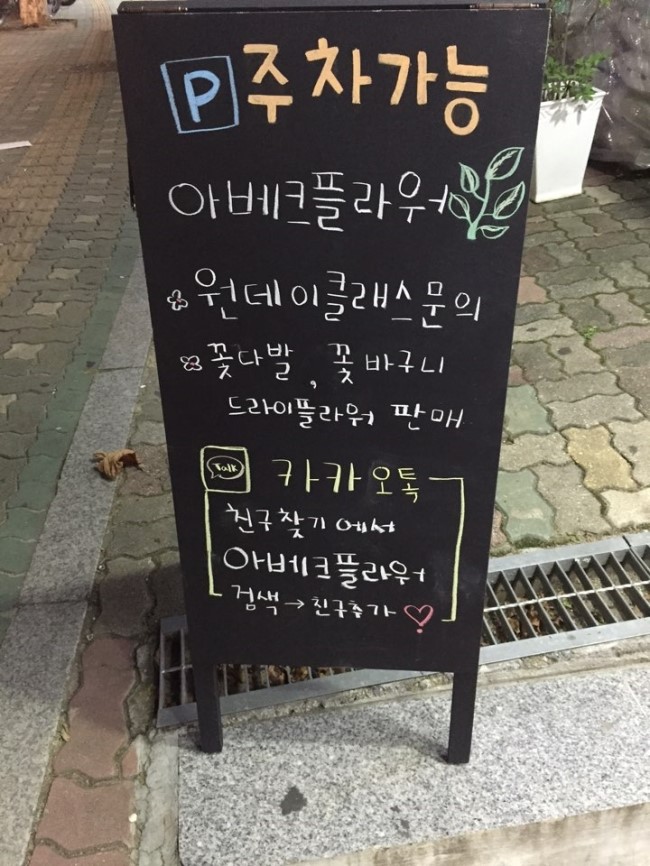 P 주차가능
아베크플라워
원데이클래스문의
꽃다발, 꽃바구니
드라이플라워 판매
Talk 카카오톡
친구찾기에서
아베크플라워
검색→친구추가♡